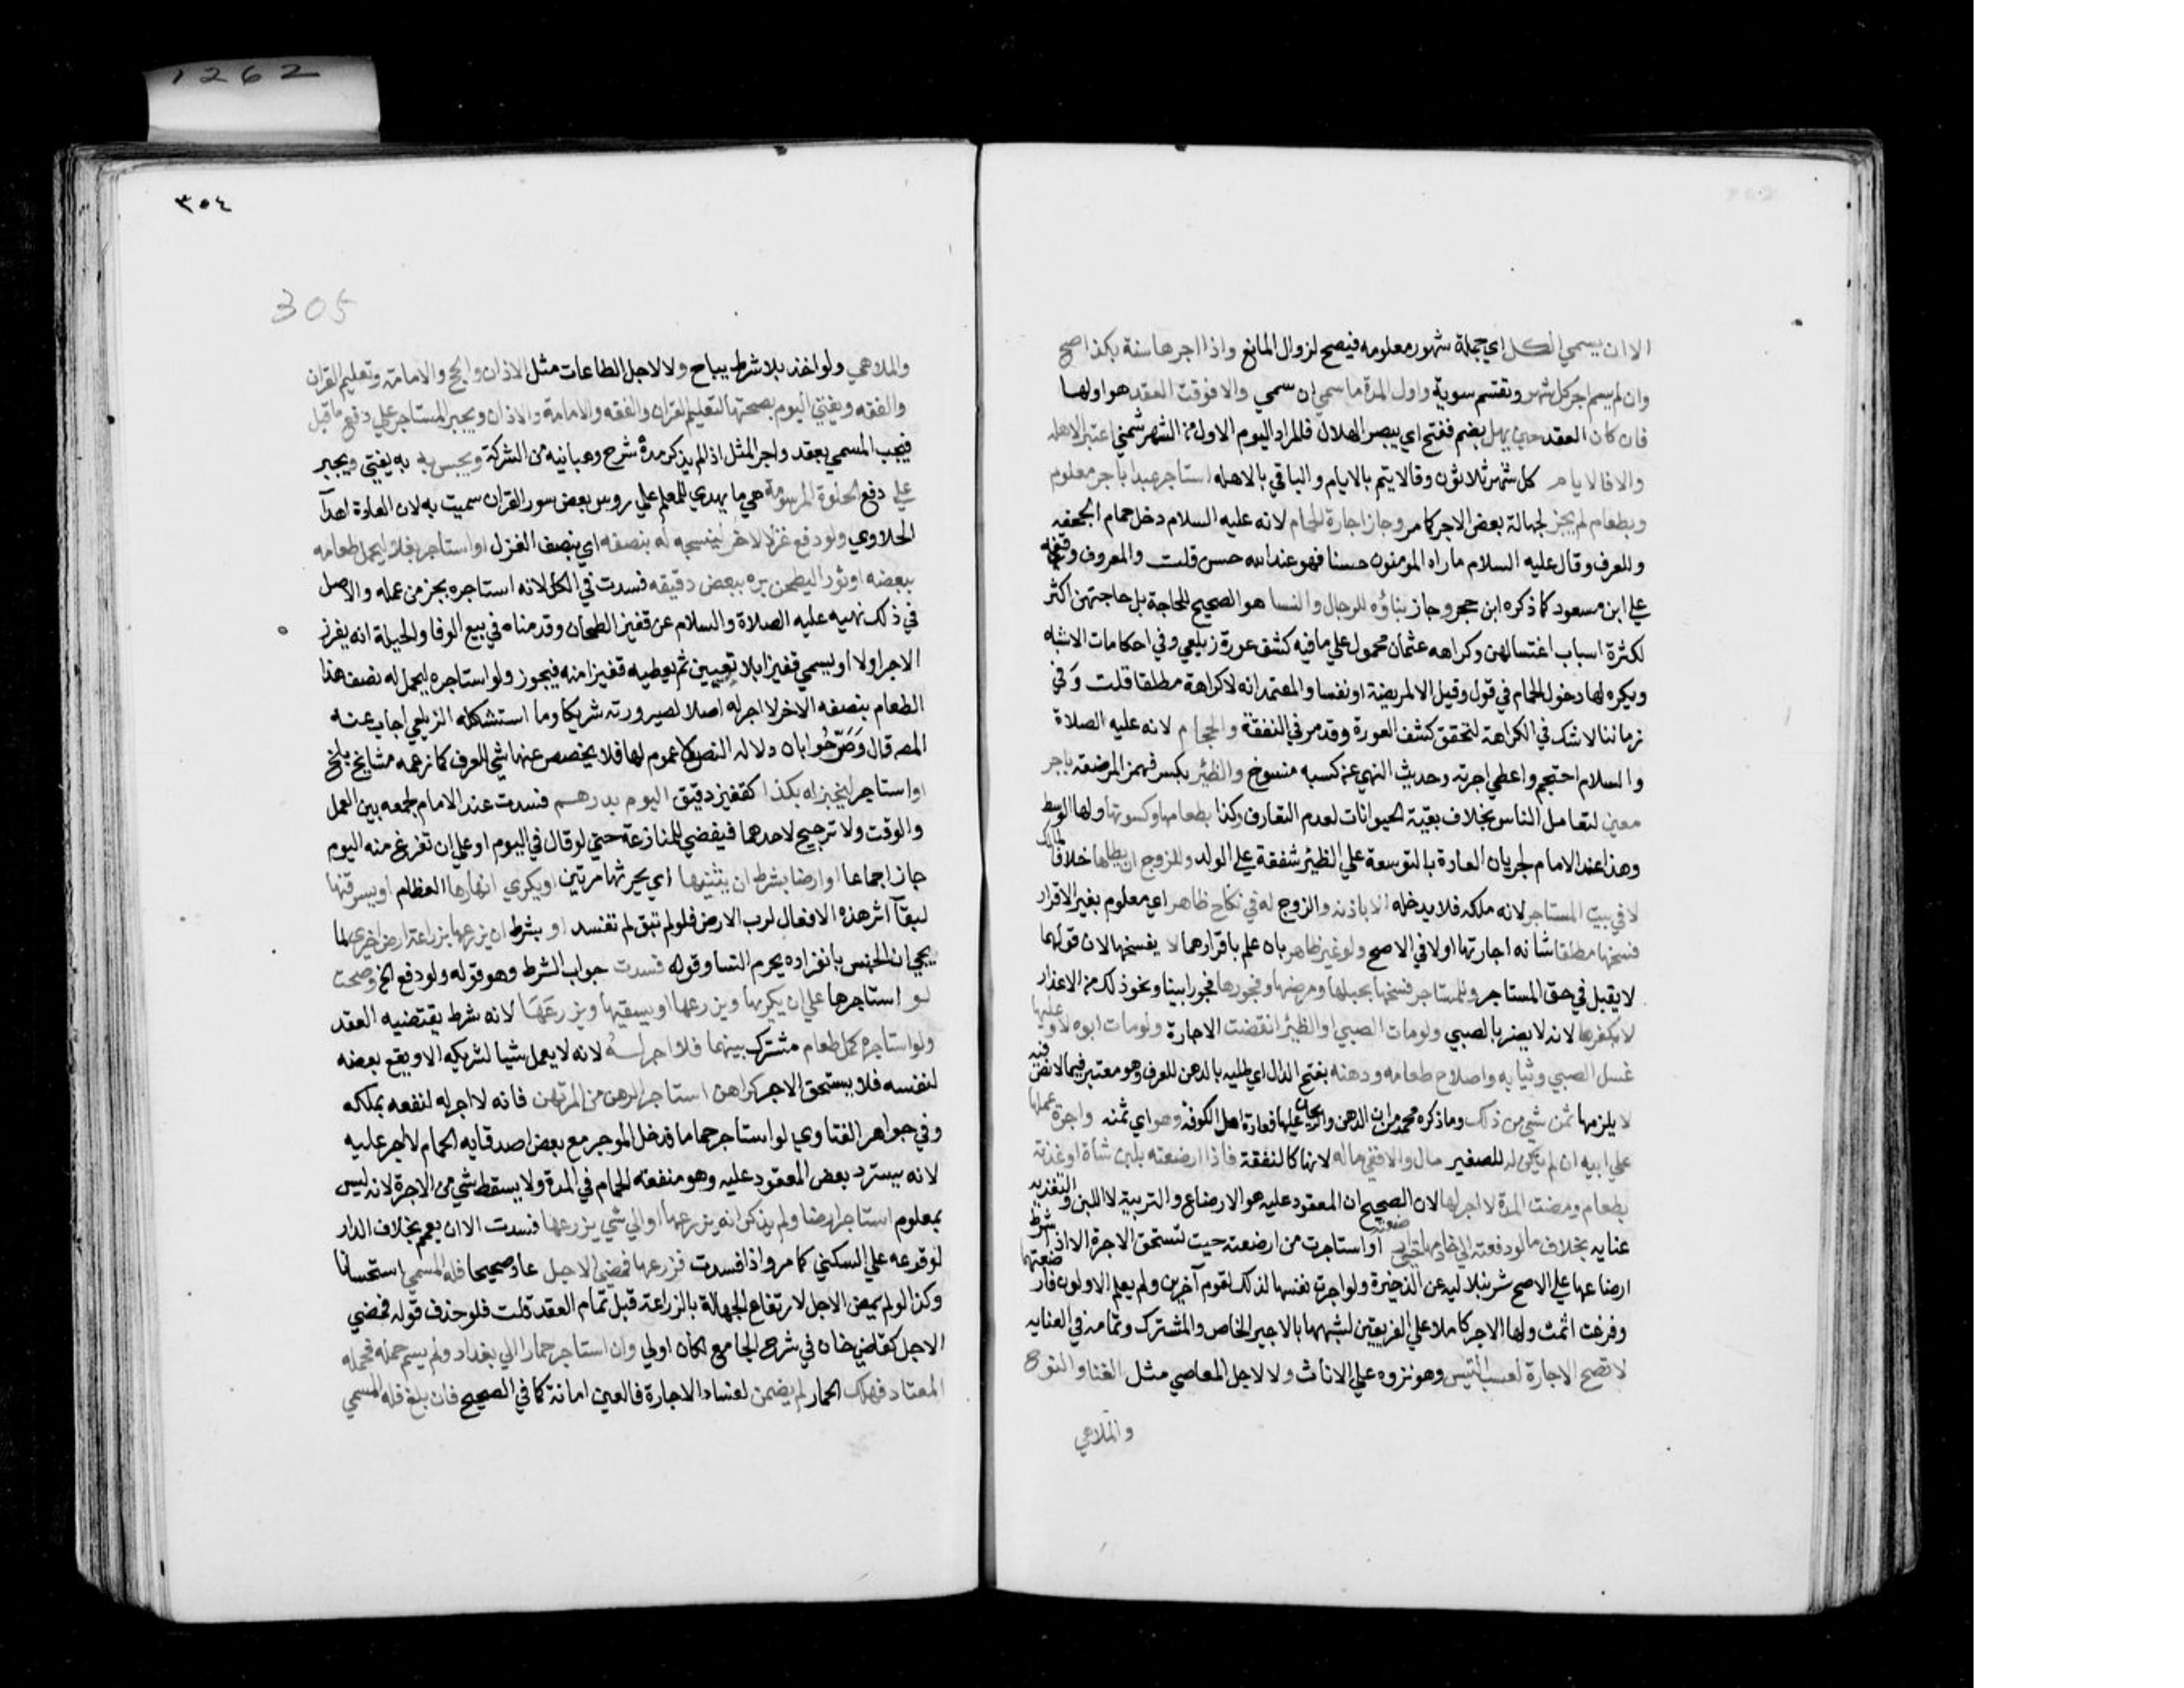 1262
الا ان يسمي الكل اي جملة شهور معلومه فيصح لزوال المانع واذا اجرها سنة بكذا صح
وان لم يسم اجر كل شهر وتقسم سوية واول المدة ما سمي ان سمي والا فوقت العقد هو اولها
فان كان العقد حين يهل بضم ففتح اي يبصر الهلال فالمراد اليوم الاول من الشهر شمني اعتبر الاهله
والا فالايام كل شهر ثلاثون وقالا يتم بالايام والباقي بالاهله استاجر عبدا باجر معلوم
وبطعام لم يجز لجهالة بعض الاجر كما مر وجاز اجارة الحمام لانه عليه السلام دخل حمام الجحفه
وللعرف وقال عليه السلام ما راه المومنون حسنا فهو عند الله حسن قلت والمعروف وقفه
علي ابن مسعود كما ذكره ابن حجر وجاز بناؤه للرجال والنسا هو الصحيح للحاجة بل حاجتهن اكثر
لكثرة اسباب اغتسالهن وكراهه عثمان محمول علي ما فيه كشف عورة زيلعي وفي احكامات الاشباه
ويكره لها دخول الحمام في قول وقيل الا لمريضة او نفسا والمعتمد انه لا كراهة مطلقا قلت وفي
زماننا لا شك في الكراهة لتحقق كشف العورة وقد مر في النفقة والحجام لانه عليه الصلاة
والسلام احتجم واعطي اجرته وحديث النهي عن كسبه منسوخ والظئر بكسر فهمز المرضعة باجر
معين لتعامل الناس بخلاف بقية الحيوانات لعدم التعارف وكذا بطعامها وكسوتها ولها الوسط
وهذا عند الامام لجريان العادة بالتوسعة علي الظئر شفقة علي الولد وللزوج ان يطاها خلافا لمالك
لا في بيت المستاجر لانه ملكه فلا يدخله الا باذنه والزوج له في نكاح ظاهر اي معلوم بغير الاقرار
فسخها مطلقا شانه اجارتها اولا في الاصح ولو غير ظاهر بان علم باقرارهما لا يفسخها لان قولهما
لا يقبل في حق المستاجر وللمستاجر فسخها بحبلها ومرضها وفجورها فجورا بينا ونحو ذلك من الاعذار
لا بكفرها لانه لا يضر بالصبي ولو مات الصبي او الظئر انتقضت الاجارة ولو مات ابوه لا وعليها
غسل الصبي وثيابه واصلاح طعامه ودهنه بفتح الدال اي طليه بالدهن للعرف وهو معتبر فيما لا نص فيه
لا يلزمها ثمن شي من ذلك وما ذكره محمد من ان الدهن والريحان عليها فعادة اهل الكوفة وهو اي ثمنه واجرة عملها
علي ابيه ان لم يكن له للصغير مال والا ففي ماله لانها كالنفقة فاذا ارضعته بلبن شاة او غذته
بطعام ومضت المدة لا اجر لها لان الصحيح ان المعقود عليه هو الارضاع والتربية لا اللبن والتغذيه
عنايه بخلاف ما لو دفعته الي خادمها حتي ارضعته او استاجرت من ارضعته حيث تستحق الاجرة الا اذا شرط
ارضاعها علي الاصح شرنبلاليه عن الذخيرة ولو اجرت نفسها لذلك لقوم آخرين ولم يعلم الاولون فارضعتهما
وفرغت اثمت ولها الاجر كاملا علي الفريقين لشبهها بالاجير الخاص والمشترك وتمامه في العنايه
لا تصح الاجارة لعسب التيس وهو نزوه علي الاناث ولا لاجل المعاصي مثل الغنا والنوح
والملاهي
٣٥٤
305
والملاهي ولو اخذ بلا شرط يباح ولا لاجل الطاعات مثل الاذان والحج والامامة وتعليم القران
والفقه ويفتي اليوم بصحتها لتعليم القران والفقه والامامة والاذان ويجبر المستاجر علي دفع ما قبل
فيجب المسمي بعقد واجر المثل اذا لم يذكر مدة شرح وهبانيه من الشركة ويحبس به به يفتي ويجبر
علي دفع الحلوة المرسومة هي ما يهدي للمعلم علي روس بعض سور القران سميت به لان العادة اهدآ
الحلاوي ولو دفع غزلا لاخر لينسجه له بنصفه اي بنصف الغزل او استاجر بغلا ليحمل طعامه
ببعضه او ثورا ليطحن بره ببعض دقيقه فسدت في الكل لانه استاجره بجز من عمله والاصل
في ذلك نهيه عليه الصلاة والسلام عن قفيز الطحان وقدمناه في بيع الوفا والحيلة انه يفرز
الاجر اولا او يسمي قفيزا بلا تعيين ثم يعطيه قفيزا منه فيجوز ولو استاجره ليحمل له نصف هذا
الطعام بنصفه الاخر لا اجر له اصلا لصيرورته شريكا وما استشكله الزيلعي اجاب عنه
المصـ قال وصرحوا بان دلالة النص لا عموم لها فلا يخصص عنها شي بالعرف كما زعمه مشايخ بلخ
او استاجر ليخبز له بكذا كقفيز دقيق اليوم بدرهم فسدت عند الامام لجمعه بين العمل
والوقت ولا ترجيح لاحدهما فيفضي للمنازعة حتي لو قال في اليوم او علي ان تفرغ منه اليوم
جاز اجماعا او ارضا بشرط ان يثنيها اي يحرثها مرتين او يكري انهارها العظام او يسرقنها
لبقآ اثر هذه الافعال لرب الارض فلو لم تبق لم تفسد او بشرط ان يزرعها بزراعة ارض اخري لما
يجي ان الجنس بانفراده يحرم النسا وقوله فسدت جواب الشرط وهو قوله ولو دفع الخ وصحت
لو استاجرها علي ان يكربها ويزرعها او يسقيها ويزرعها لانه شرط يقتضيه العقد
ولو استاجره لحمل طعام مشترك بينهما فلا اجر له لانه لا يعمل شيا لشريكه الا ويقع بعضه
لنفسه فلا يستحق الاجر كراهن استاجر الرهن من المرتهن فانه لا اجر له لنفعه بملكه
وفي جواهر الفتاوي لو استاجر حماما فدخل الموجر مع بعض اصدقايه الحمام لا اجر عليه
لانه يسترد بعض المعقود عليه وهو منفعة الحمام في المدة ولا يسقط شي من الاجرة لانه ليس
بمعلوم استاجر ارضا ولم يذكر انه يزرعها او اي شي يزرعها فسدت الا ان يعمم بخلاف الدار
لوقوعه علي السكني كما مر واذا فسدت فزرعها فمضي الاجل عاد صحيحا فله المسمي استحسانا
وكذا لو لم يمض الاجل لارتفاع الجهالة بالزراعة قبل تمام العقد قلت فلو حذف قوله فمضي
الاجل كقاضي خان في شرح الجامع لكان اولي وان استاجر حمارا الي بغداد ولم يسم حمله فحمله
المعتاد فهلك الحمار لم يضمن لفساد الاجارة فالعين امانة كما في الصحيح فان بلغ فله المسمي